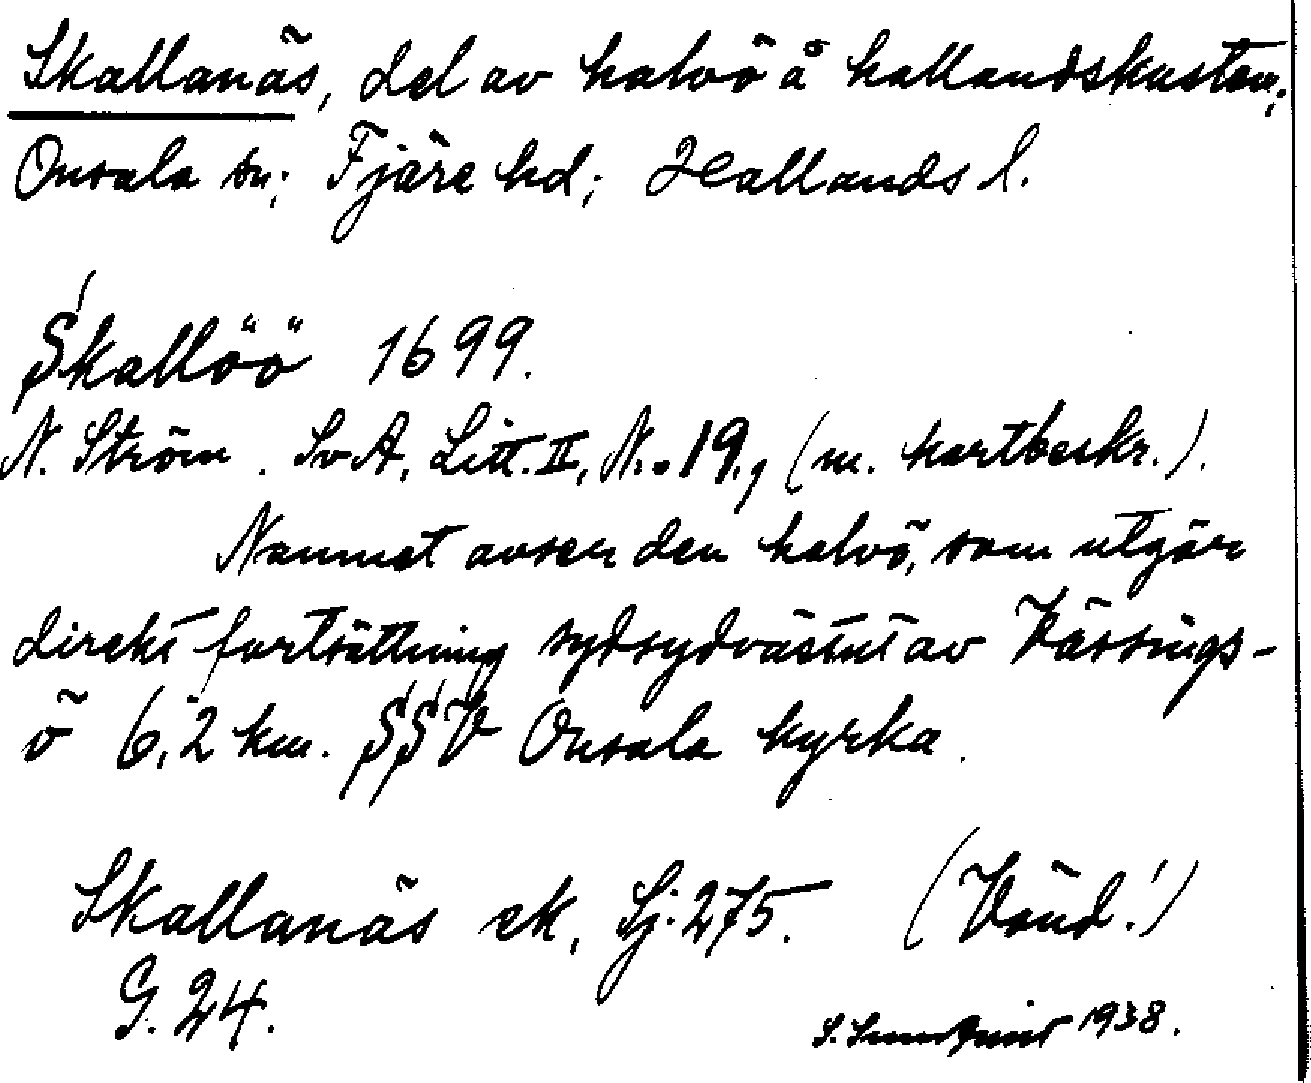 Skallanäs, del av halvö å hallandskusten;
Onsala sn; Fjäre hd; Hallands l.
Skallöö 1699.
N. Ström. SvA, Litt. II, N:o 19., (m. kartbeskr.).
Namnet avser den halvö, som utgör
direkt fortsättning sydsydvästut av Kässings-
ö 6,2 km. SSV Onsala kyrka.
Skallanäs ek, Sj. 275. (Vänd!)
G. 24.
1938.